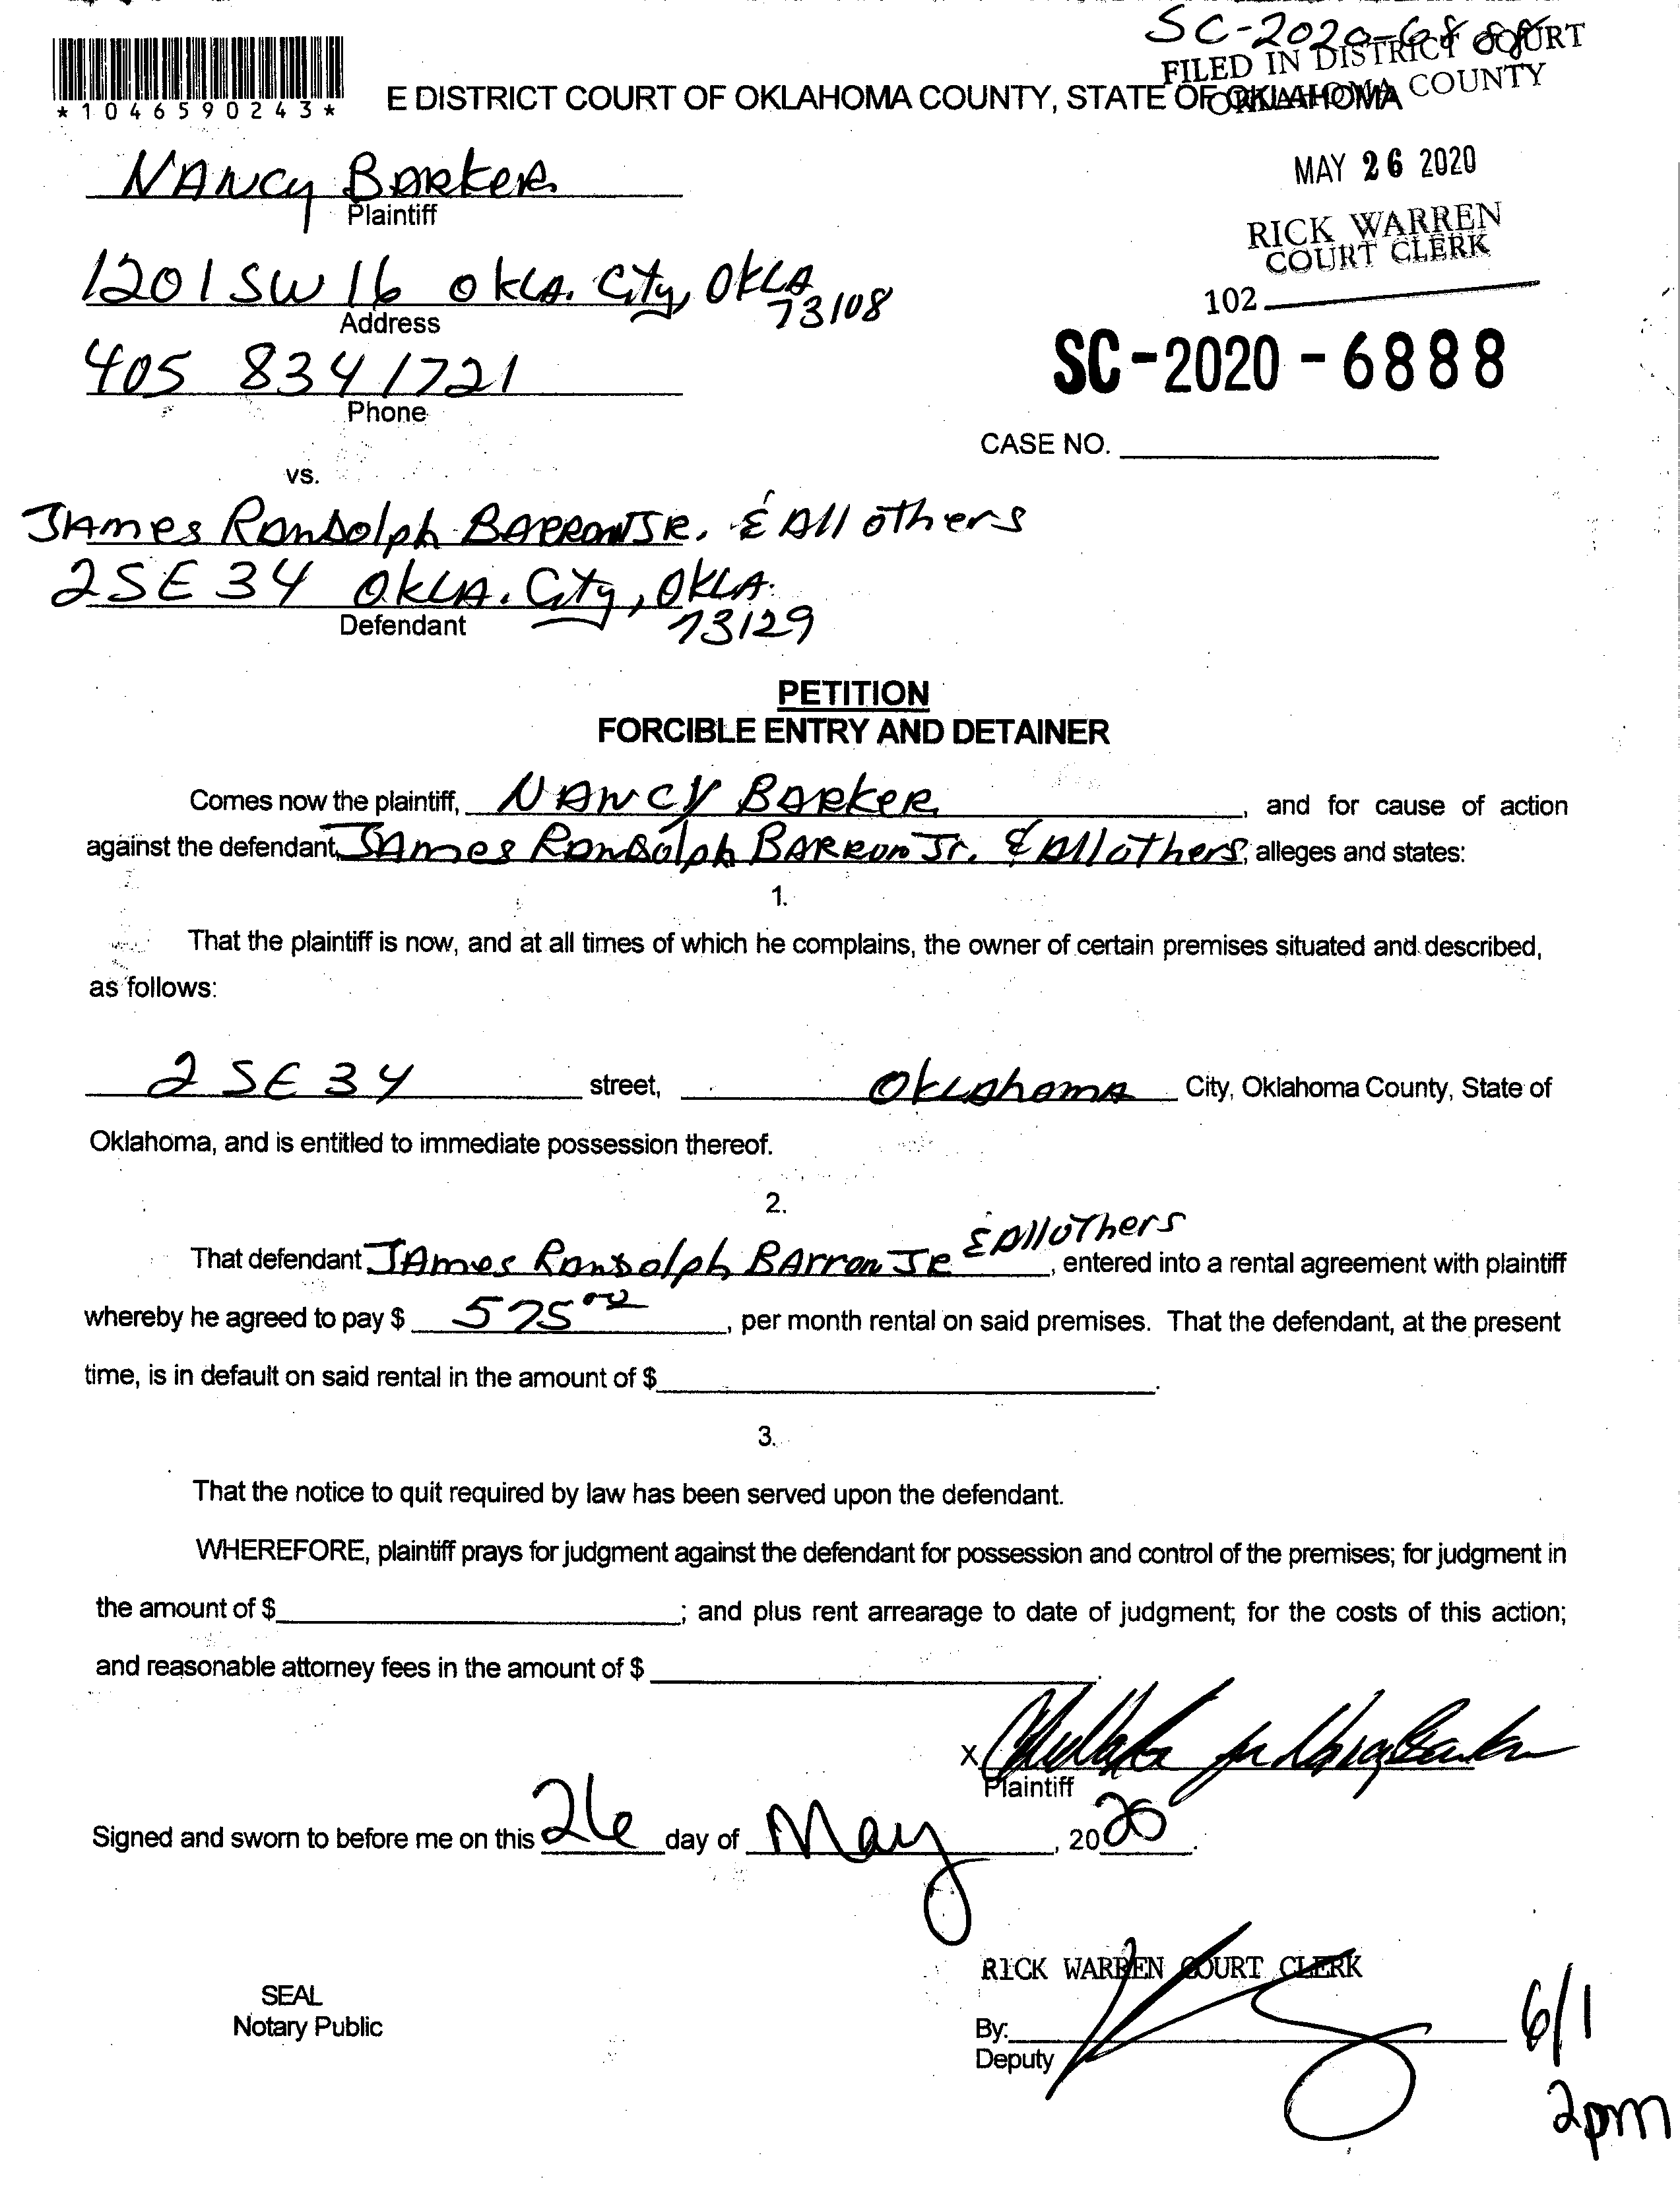 SC-2020-6888
FILED IN DISTRICT COURT
OKLAHOMA COUNTY
*1046590243*
E DISTRICT COURT OF OKLAHOMA COUNTY, STATE OF OKLAHOMA
MAY 26 2020
NANCY BARKER
Plaintiff
RICK WARREN
COURT CLERK
1201 SW 16 OKLA. City, OKLA
73108
Address
102
405 834 1721
Phone
SC-2020-6888
CASE NO.
vs.
JAmes RANDolph BARRON JR. & All others
2 SE 34 OKLA. City, OKLA.
73129
Defendant
PETITION
FORCIBLE ENTRY AND DETAINER
Comes now the plaintiff, NANCY BARKER, and for cause of action
against the defendant, JAmes RANDolph BARRON Jr. & All others, alleges and states:
1.
That the plaintiff is now, and at all times of which he complains, the owner of certain premises situated and described,
as follows:
2 SE 34 street, OKLAhomA City, Oklahoma County, State of
Oklahoma, and is entitled to immediate possession thereof.
2.
That defendant JAmes RANDolph BArron JR & All oThers, entered into a rental agreement with plaintiff
whereby he agreed to pay $ 575.00, per month rental on said premises. That the defendant, at the present
time, is in default on said rental in the amount of $ .
3.
That the notice to quit required by law has been served upon the defendant.
WHEREFORE, plaintiff prays for judgment against the defendant for possession and control of the premises; for judgment in
the amount of $ ; and plus rent arrearage to date of judgment; for the costs of this action;
and reasonable attorney fees in the amount of $ .
X for Nancy Barker
Plaintiff
Signed and sworn to before me on this 26 day of May, 2020.
RICK WARREN COURT CLERK
SEAL
Notary Public
By:
Deputy
6/1
2pm